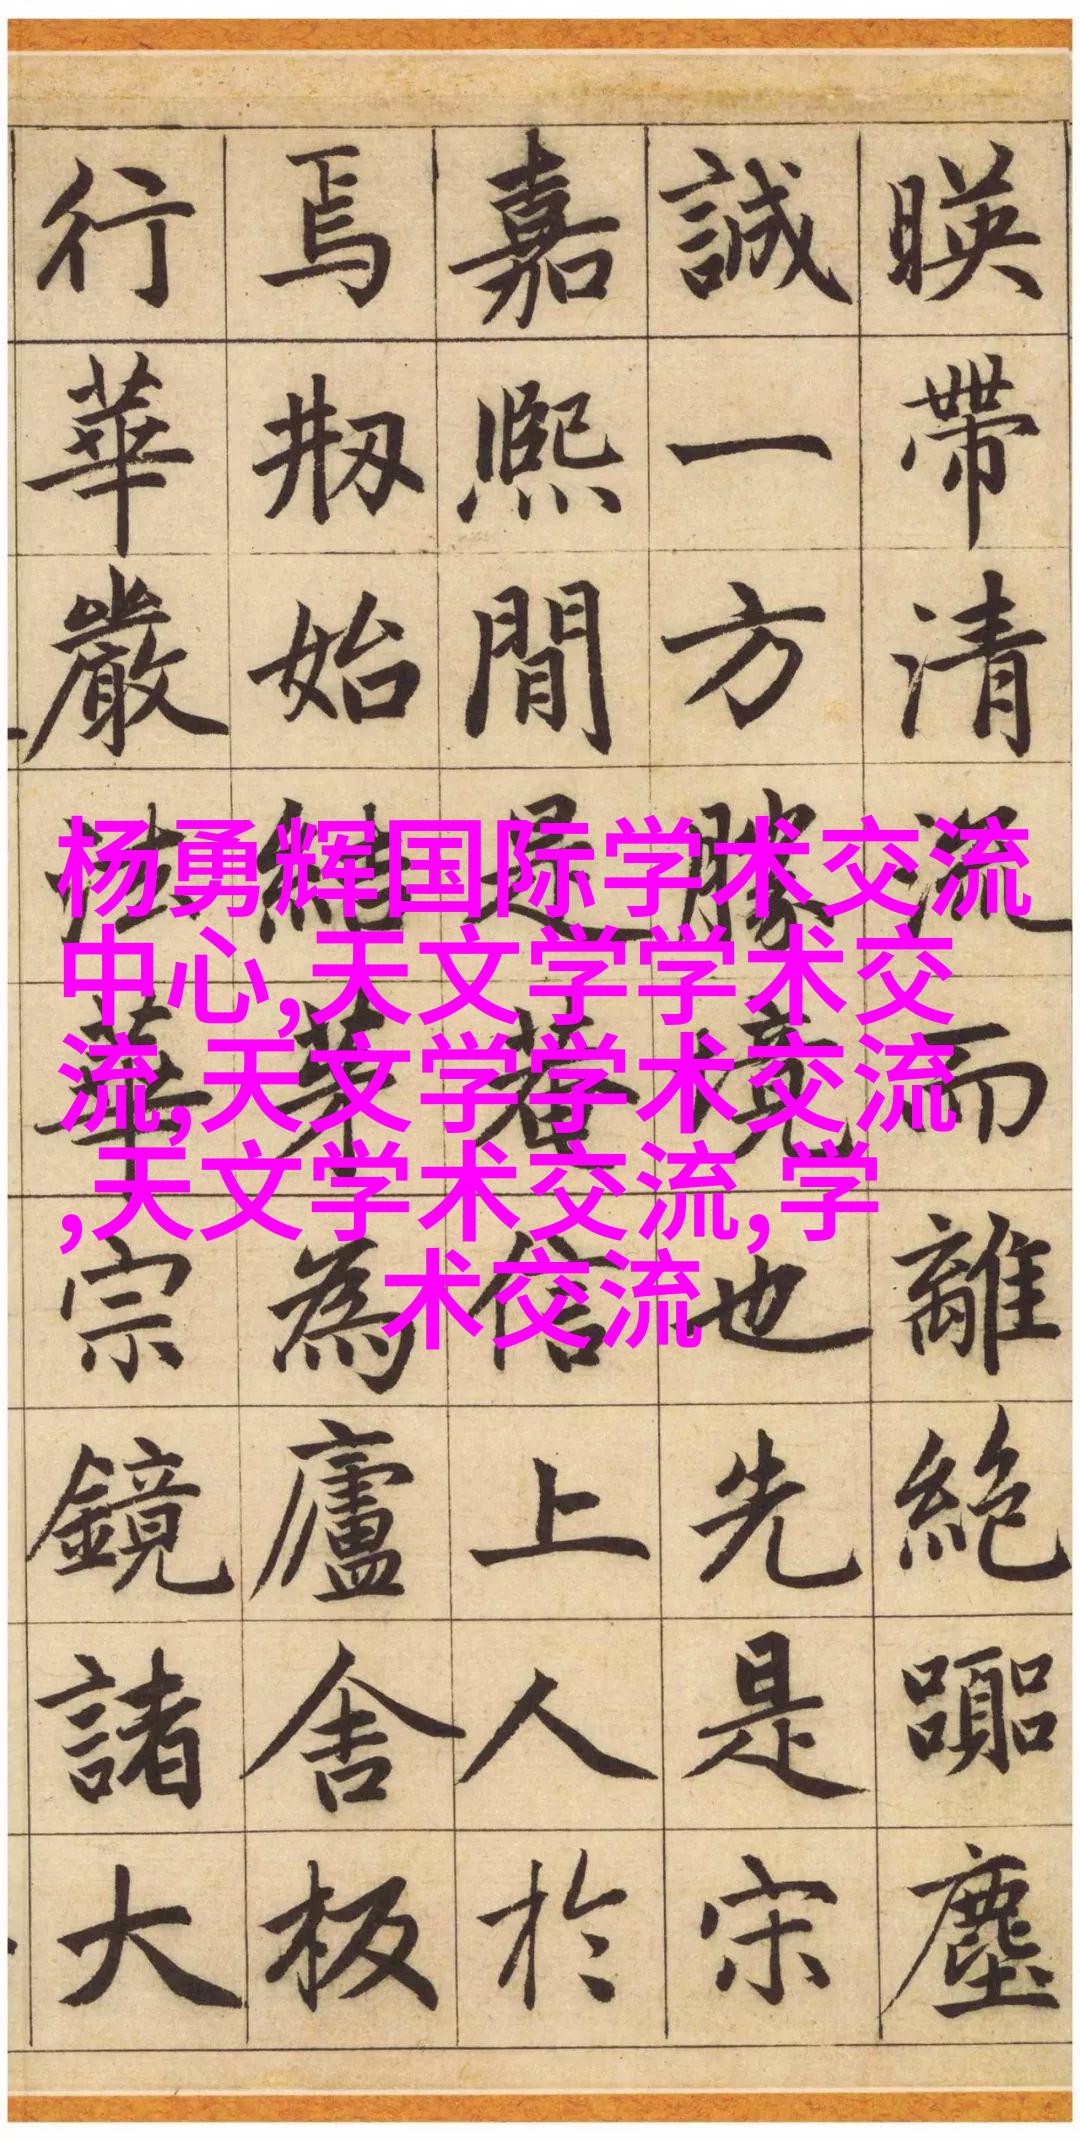 杨勇辉国际学术交流
中心,天文学学术交
流,天文学学术交流
,天文学术交流,学
术交流
暎帶清流而離絕囂塵
誠一方勝境也先是宋
嘉熙間是菴信上人於
焉剏始結茅為廬舍板
行華嚴法華宗鏡諸大